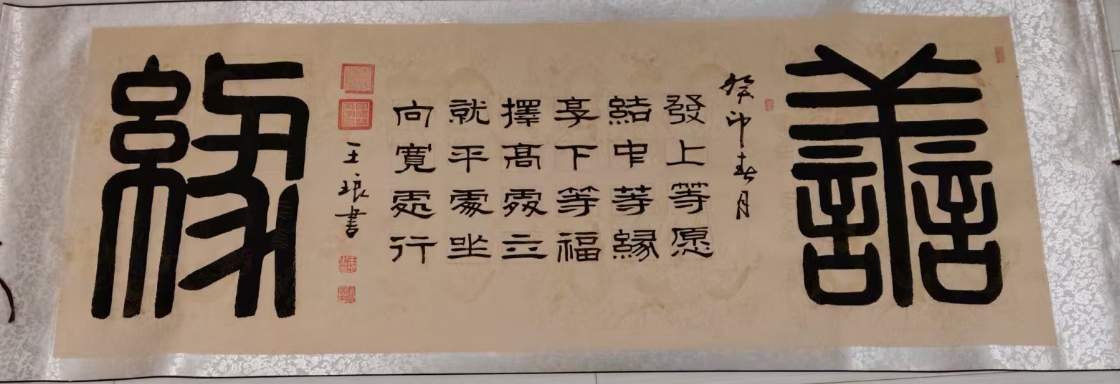 譱
癸卯春月
發上等愿
結中等緣
享下等福
擇高處立
就平處坐
向寬處行
王琅書
緣